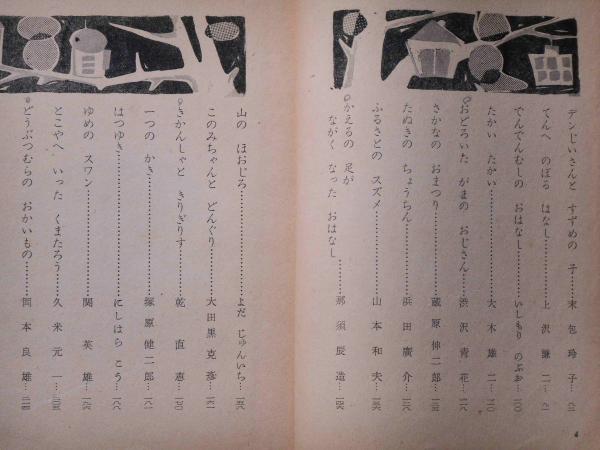 テンじいさんと すずめの 子…末包玲子…(八二)
てんへ のぼる はなし……上沢謙二…(九一)
でんでんむしの おはなし……いしもり のぶお…(一〇〇)
たかい たかい……大木雄二…(一一〇)
おどろいた がまの おじさん……渋沢青花…(一一八)
さかなの おまつり……蔵原伸二郎…
たぬきの ちょうちん……浜田廣介…(一二八)
ふるさとの スズメ……山本和夫…
かえるの 足が
ながく なった おはなし……那須辰造…(一四六)
4
山の ほおじろ……よだ じゅんいち…(一五六)
このみちゃんと どんぐり……大田黒克彦…(一六一)
きかんしゃと きりぎりす……乾直恵…(一七〇)
一つの かき……塚原健二郎…(一八一)
はつゆき……にしはら こう…(一八八)
ゆめの スワン……関英雄…(一九六)
とこやへ いった くまたろう……久米元一…(二〇三)
どうぶつむらの おかいもの……岡本良雄…(二一四)